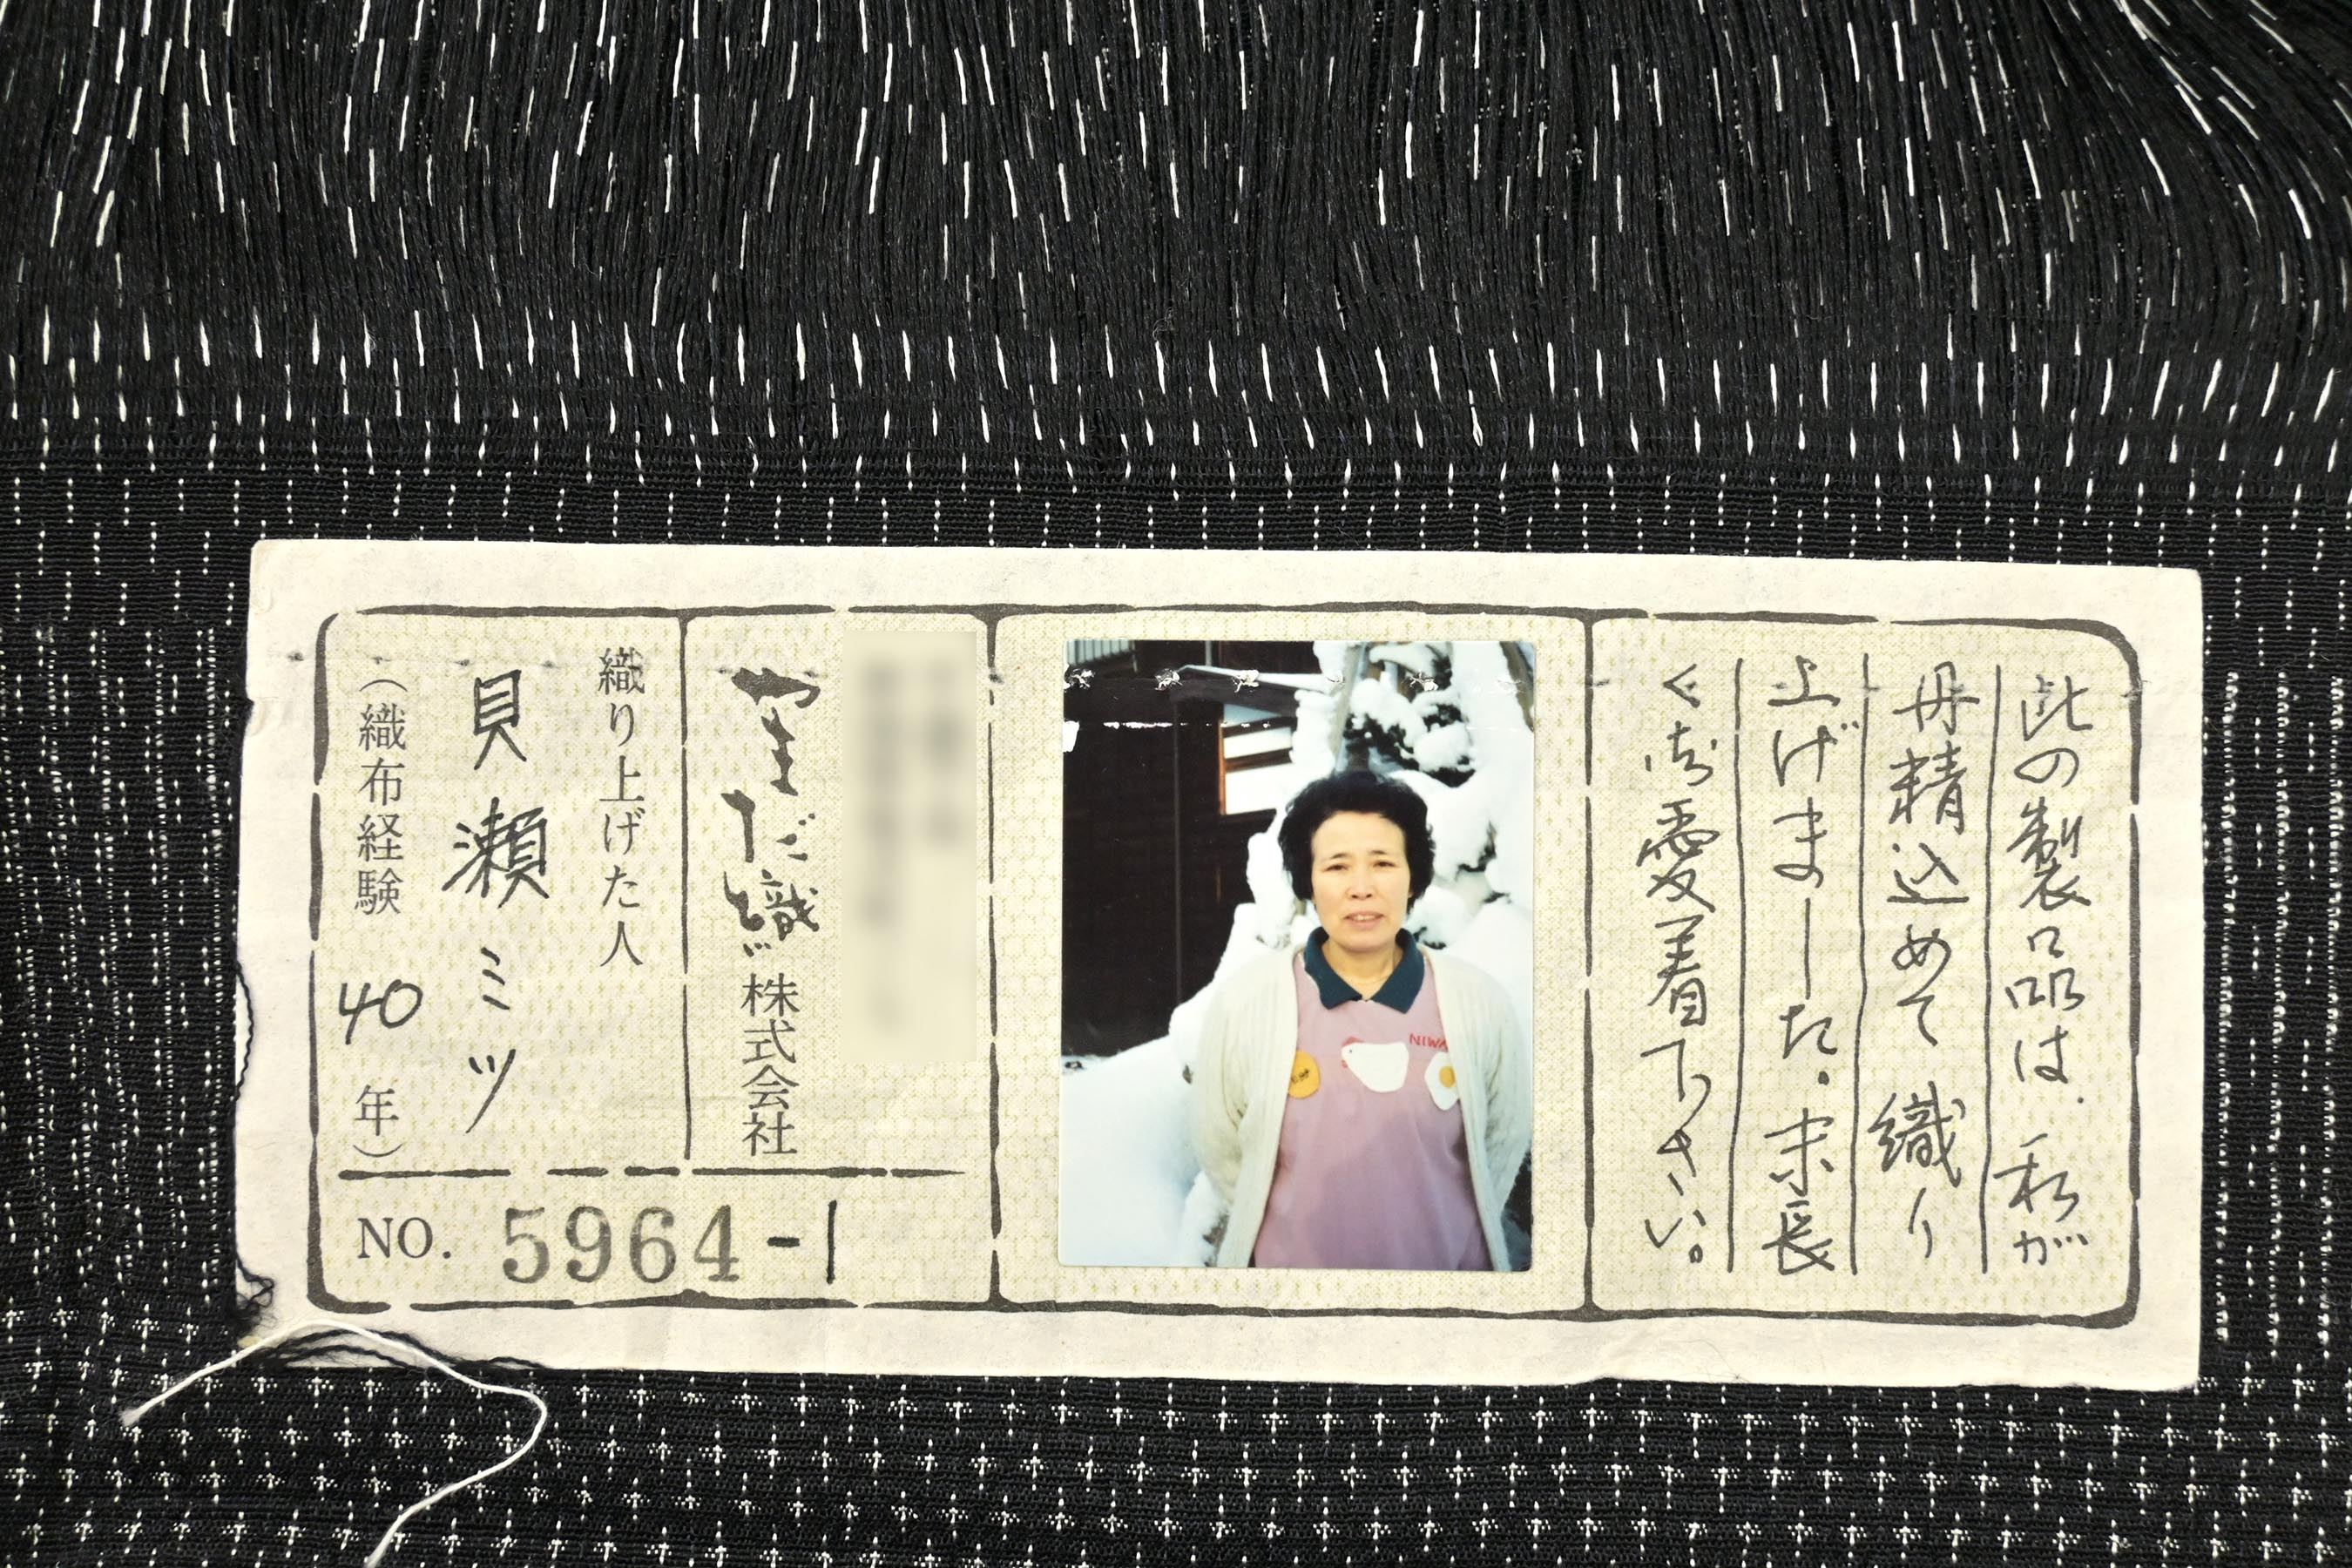 此の製品は、私が
丹精込めて織り
上げました。末長
くお愛着下さい。
NIWA
やまだ織
株式会社
織り上げた人
貝瀬ミツ
(織布経験 40 年)
NO. 5964-1